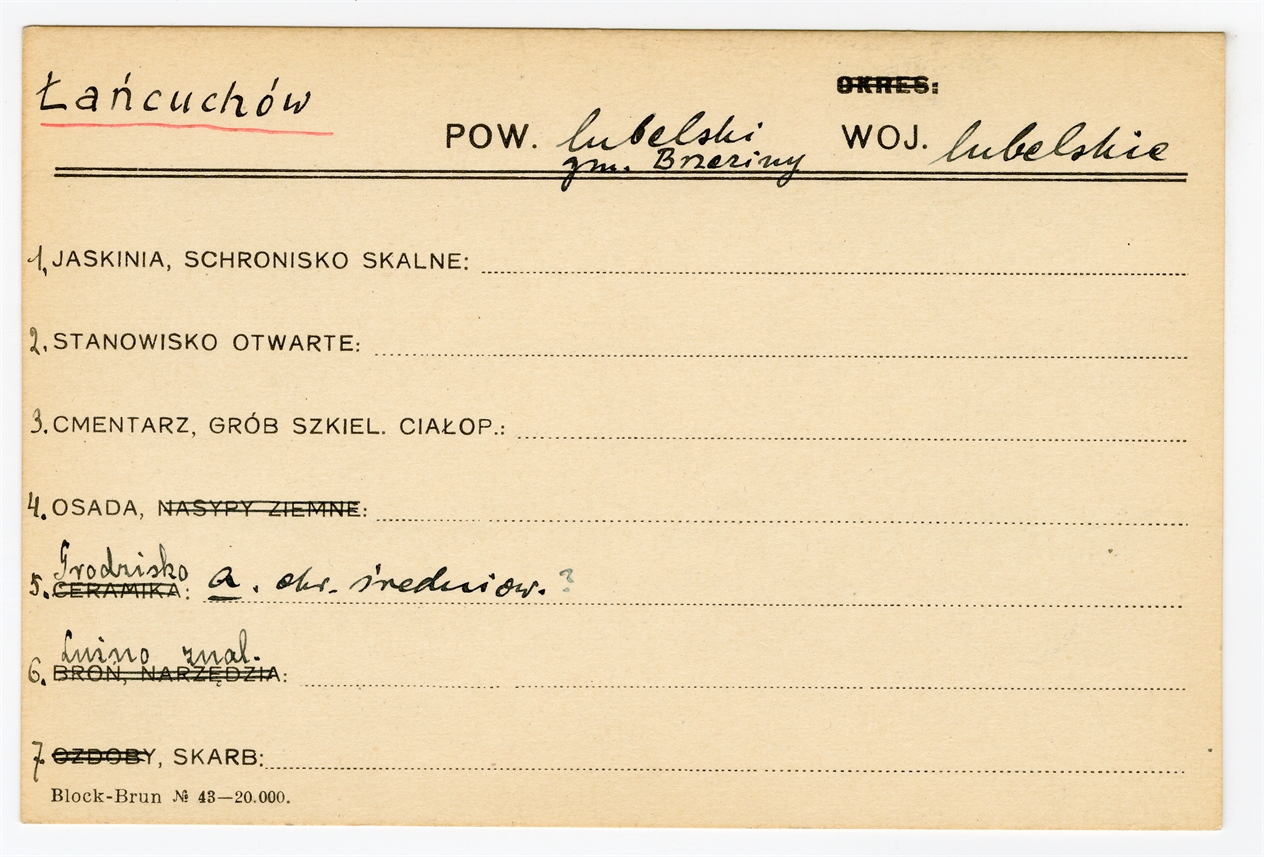 Łańcuchów
OKRES:
POW. lubelski WOJ. lubelskie
gm. Brzeziny
1, JASKINIA, SCHRONISKO SKALNE:
2. STANOWISKO OTWARTE:
3. CMENTARZ, GRÓB SZKIEL. CIAŁOP.:
4. OSADA, NASYPY ZIEMNE:
Grodzisko
5. CERAMIKA: a. okr. średniow. ?
Luźno znal.
6. BROŃ, NARZĘDZIA:
7. OZDOBY, SKARB:
Block-Brun № 43—20.000.